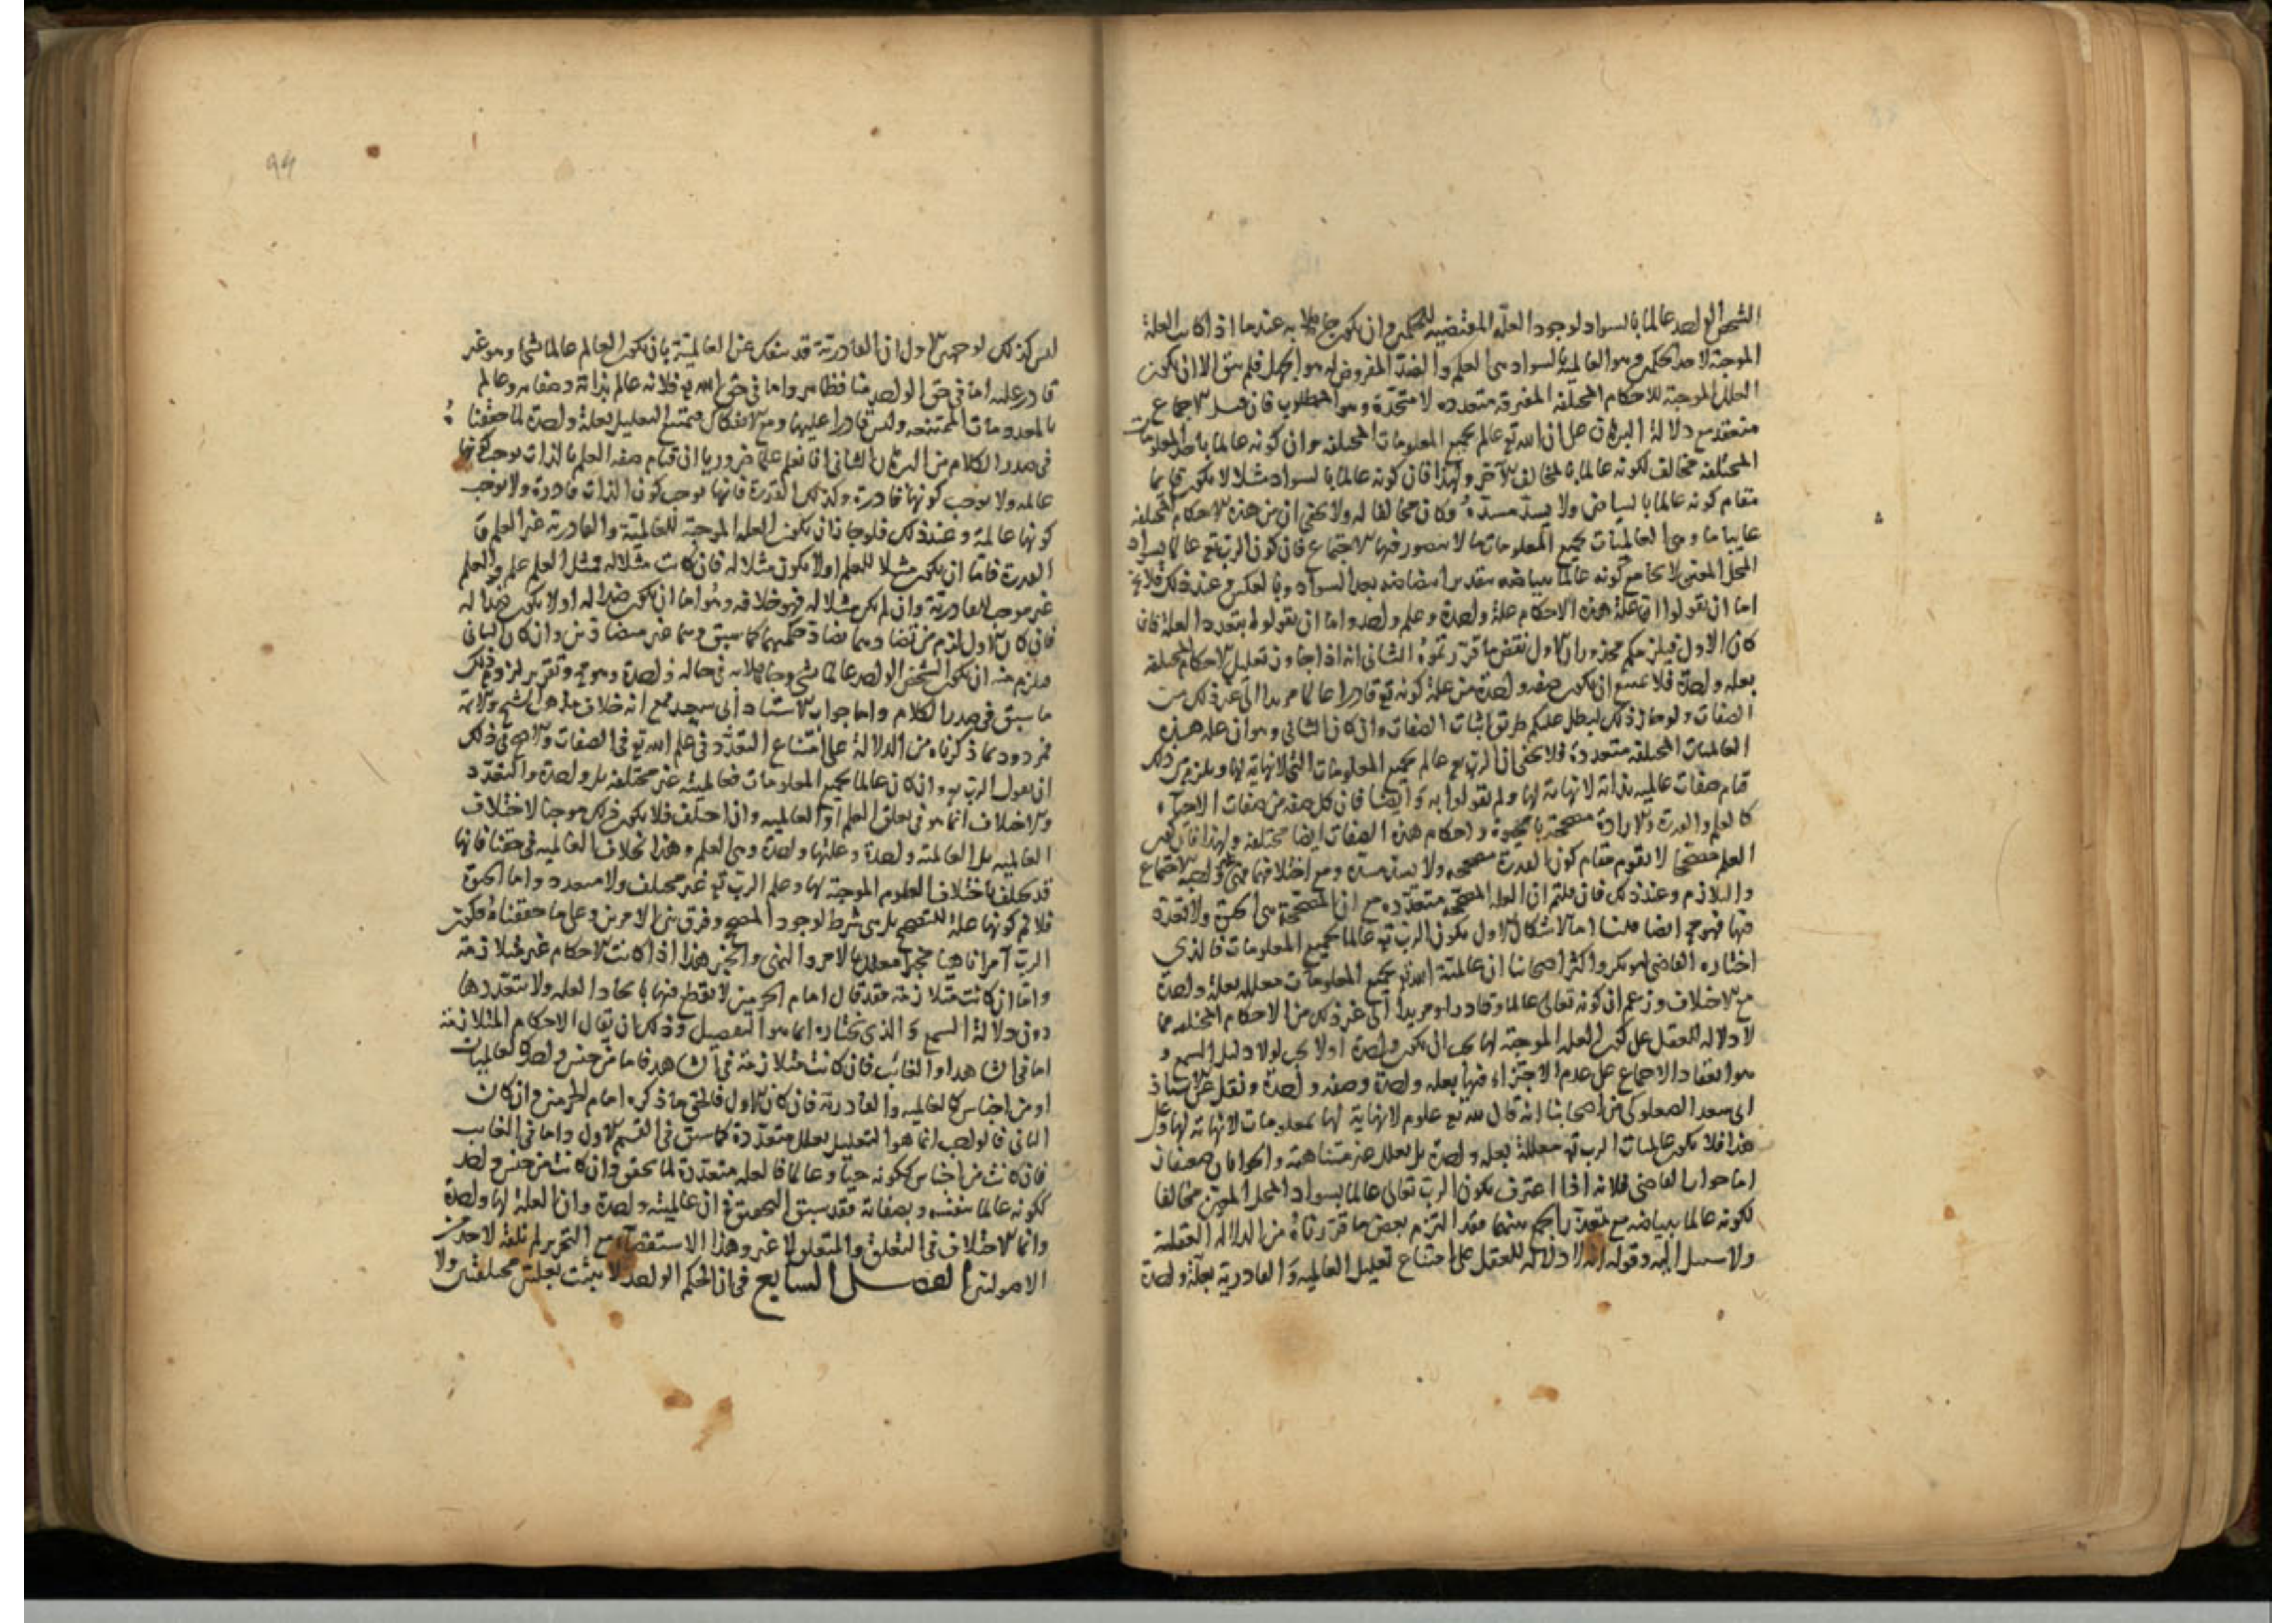 الشخص الواحد عالما بالسواد لوجود العلة المقتضيه للحكم وان يكون جاهلا به عندما اذا كانت العلة
الموجبة لاحد الحكمين وهو العالمية بالسواد هى العلم والضد المفروض له هو الجهل فلم يبق الا ان يكون
العلل الموجبة للاحكام المختلفه المفترقه متعدده لا متحدة وهو المطلوب فان قيل الاجماع
منعقد مع دلالة البرهان على ان الله تع عالم بجميع المعلومات المختلفه وان كونه عالما باحد المعلومات
المختلفه مخالف لكونه عالما بالمخالف الآخر ولهذا فان كونه عالما بالسواد مثلا لا يكون قايما
مقام كونه عالما بالبياض ولا يسد مسده وكان مخالفا له ولا يخفى ان من هذه الاحكام المختلفه
عايبا ما وهى العالميات بجميع المعلومات ما لا يتصور فيها الاجتماع فان كون الرب تع عالما بسواد
المحل المعين لا يجامع كونه عالما ببياضه بتقدير ابيضاضه بعد السواد وبالعكس وعند ذلك فلا يخ
اما ان تقولوا ان علة هذه الاحكام علة واحدة وعلم واحد واما ان تقولوا بتعدد العلة فان
كان الاول فيلزمكم محذوران الاول نقض ما قررتموه الثانى انه اذا جاز تعليل الاحكام المختلفه
بعله واحدة فلا يمتنع ان يكون صفه واحدة هى علة كونه تع قادرا عالما مريدا الى غير ذلك من
الصفات ولو جاز ذلك لبطل عليكم طريق اثبات الصفات وان كان الثانى وهو ان علة هذه
العالميات المختلفه متعددة فلا يخفى ان الرب تع عالم بجميع المعلومات التى لا نهاية لها ويلزم من ذلك
قيام صفات عالميه بذاته لا نهاية لها ولم تقولوا به وايضا فان كل صفه من صفات الاحياء
كالعلم والقدرة والارادة مصححة بالحيوة واحكام هذه الصفات ايضا مختلفه ولهذا فان كون
العلم مصححا لا يقوم مقام كون القدرة مصححه ولا يسد مسده ومع اختلافها فهى واجبة الاجتماع
والتلازم وعند ذلك فان قلتم ان العله المصححه متعدده مع ان المصححة هى الحيوة ولا تعدد
فيها فهو مح ايضا قلنا اما الاشكال الاول بكون الرب تع عالما بجميع المعلومات فالذي
اختاره القاضى ابو بكر واكثر اصحابنا ان عالمية الله تع بجميع المعلومات معلله بعلة واحدة
مع الاختلاف وزعم ان كونه تعالى عالما وقادرا ومريدا الى غير ذلك من الاحكام المختلفه مما
لا دلاله للعقل على كون العله الموجبة لها يجب ان يكون واحدة اولا يجب لولا دليل السمع و
هو انعقاد الاجماع على عدم الاجتزاء فيها بعله واحدة وصفه واحدة ونقل عن الاستاذ
ابى سعد الصعلوكى من اصحابنا انه قال لله تع علوم لا نهاية لها بمعلومات لا نهاية لها وعلى
هذا فلا يكون عالميات الرب تع معللة بعله واحدة بل بعلل غير متناهية والجوابان ضعيفان
اما جواب القاضى فلانه اذا اعترف بكون الرب تعالى عالما بسواد المحل المعين مخالفا
لكونه عالما ببياضه مع تعذر الجمع بينهما فقد التزم بعض ما قررناه من الدلاله العقليه
ولا سبيل اليه وقوله انه لا دلالة للعقل على امتناع تعليل العالميه والقادرية بعلة واحدة
94
ليس كذلك لوجهين الاول ان القادرية قد ينفك عن العالمية بان يكون العالم عالما بشئ وهو غير
قادر عليه اما فى حق الواحد منا فظاهر واما فى حق الله تع فلانه عالم بذاته وصفاته وعالم
بالمعدومات الممتنعه وليس قادرا عليها ومع الانفكاك فيمتنع التعليل بعلة واحدة لما حققنا
فى صدر الكلام من البرهان الثانى انا نعلم علما ضروريا ان قيام صفه العلم بالذات يوجب كونها
عالمه ولا يوجب كونها قادرة وكذلك القدرة فانها يوجب كون الذات قادرة ولا يوجب
كونها عالمة وعند ذلك فلو جاز ان يكون العله الموجبة للعالمية والقادرية غير العلم و
القدرة فاما ان يكون مثلا للعلم او لا يكون مثلا له فان كانت مثلا له فمثل العلم علم والعلم
غير موجب للقادرية وان لم يكن مثلا له فهو خلافه وهو اما ان يكون ضدا له او لا يكون ضدا له
فان كان الاول لزم من تضادهما تضاد حكميهما كما سبق وهما غير متضادين وان كان الثانى
فيلزم منه ان يكون الشخص الواحد عالما بشئ وجاهلا به فى حاله واحدة وهو مح وتقرير لزوم ذلك
ما سبق فى صدر الكلام واما جواب الاستاد ابى سعد مع انه خلاف مذهب الشيخ والائمة
فمردود بما ذكرناه من الدلالة على امتناع التعدد فى علم الله تع فى الصفات والاصح فى ذلك
ان يقول الرب تع وان كان عالما بجميع المعلومات فعالميته غير مختلفه بل واحدة والتعدد
والاختلاف انما هو فى تعلق العلم او العالميه وان اختلف فلا يكون ذلك موجبا لاختلاف
العالميه بل العالميه واحدة وعلتها واحدة وهى العلم وهذا بخلاف العالميه فى حقنا فانها
قد تختلف باختلاف العلوم الموجبة لها وعلم الرب تع غير مختلف ولا متعدد واما الحيوة
فلا نم كونها علة للتصحيح بل هى شرط لوجود المصحح وفرق بين الامرين وعلى ما حققناه فكون
الرب آمرا ناهيا مخبرا معلل بالامر والنهى والخبر هذا اذا كانت الاحكام غير متلازمة
واما ان كانت متلازمة فقد قال امام الحرمين لا يقطع فيها باتحاد العله ولا بتعددها
دون دلالة السمع والذي نختاره انما هو التفصيل وذلك ان يقال الاحكام المتلازمة
اما فى الشاهد او الغائب فان كانت متلازمة فى الشاهد فاما من جنس واحد كالعالميات
او من اجناس كالعالميه والقادرية فان كان الاول فالحق ما ذكره امام الحرمين وان كان
الثانى فالواجب انما هو التعليل بعلل متعددة كما سبق فى القسم الاول واما فى الغايب
فان كانت من اجناس ككونه حيا وعالما فالعله متعددة لما تحقق وان كانت من جنس واحد
ككونه عالما بنفسه وبصفاته فقد سبق التحقيق فى ان عالميته واحدة وان العلة لها واحدة
وانما الاختلاف فى التعلق والمتعلق لا غير وهذا الاستقصاء مع التحرير لم نلفه لاحد من
الاصولين الفصل السابع فى ان الحكم الواحد لا يثبت بعلتين مختلفتين ولا